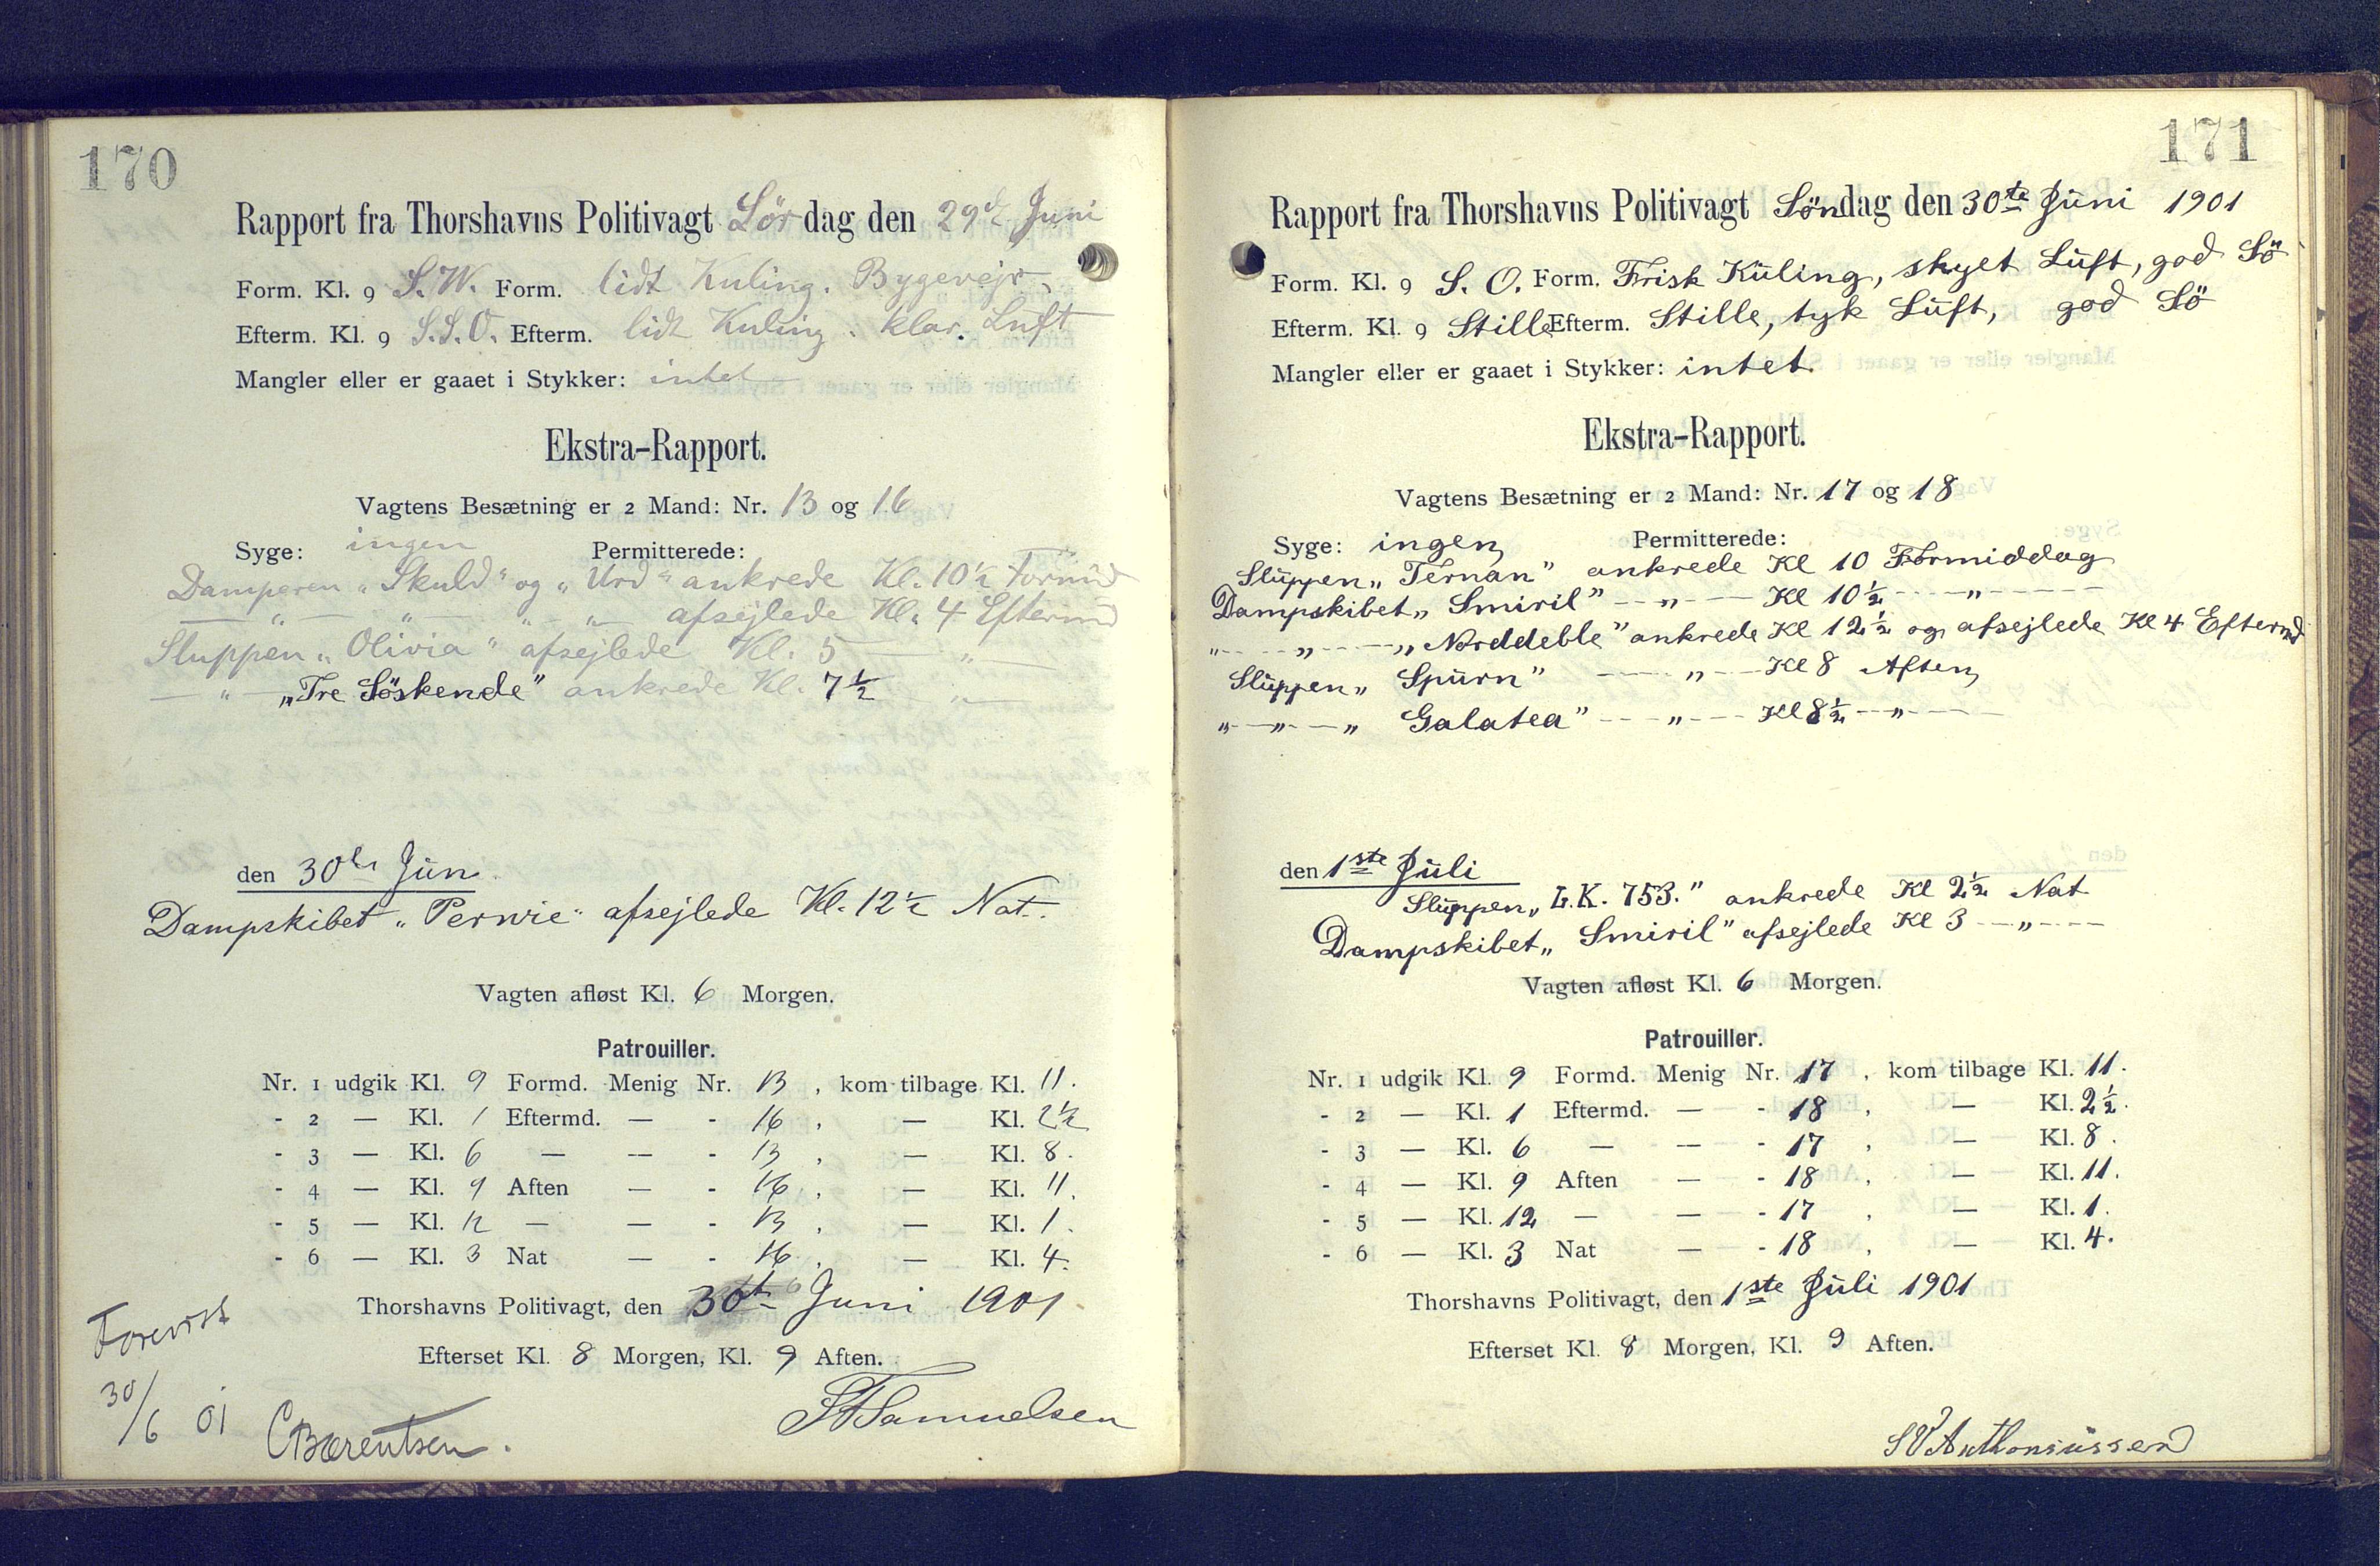 170
Rapport fra Thorshavns Politivagt Lördag den 29d Juni
Form. Kl. 9 S.W. Form. lidt Kuling. Bygevejr.
Efterm. Kl. 9 S.S.O. Efterm. lidt Kuling. klar. Luft
Mangler eller er gaaet i Stykker: intet
Ekstra-Rapport.
Vagtens Besætning er 2 Mand: Nr. 13 og 16
Syge: ingen Permitterede:
Damperen „Skuld" og „Urd" ankrede Kl. 10½ Formid
— " — " — " — " — afsejlede Kl. 4 Eftermd
Sluppen „Olivia" afsejlede Kl. 5 — " —
— " — „Tre Söskende" ankrede Kl. 7½ — " —
den 30te Juni
Dampskibet „Perwie" afsejlede Kl. 12½ Nat.
Vagten afløst Kl. 6 Morgen.
Patrouiller.
Nr. 1 udgik Kl. 9 Formd. Menig Nr. 13, kom tilbage Kl. 11.
- 2 — Kl. 1 Eftermd. — - 16, — Kl. 2½
- 3 — Kl. 6 — — - 13, — Kl. 8.
- 4 — Kl. 9 Aften — - 16, — Kl. 11.
- 5 — Kl. 12 — — - 13, — Kl. 1.
- 6 — Kl. 3 Nat — - 16, — Kl. 4.
Thorshavns Politivagt, den 30te Juni 1901
Efterset Kl. 8 Morgen, Kl. 9 Aften.
Forevist
30/6 01 CBærentsen.
Samuelsen
171
Rapport fra Thorshavns Politivagt Söndag den 30te Jüni 1901
Form. Kl. 9 S. O. Form. Frisk Küling, skyet Lüft, god Sö
Efterm. Kl. 9 Stille Efterm. Stille, tyk Lüft, god Sö
Mangler eller er gaaet i Stykker: intet.
Ekstra-Rapport.
Vagtens Besætning er 2 Mand: Nr. 17 og 18
Syge: ingen Permitterede:
Slüppen „Ternan" ankrede Kl 10 Formiddag
Dampskibet „Smiril" — " — Kl 10½ — " —
" — " — „Norddeble" ankrede Kl 12½ og afsejlede Kl 4 Eftermd
Slüppen „Spürn" — " — Kl 8 Aften
" — " — „Galatea" — " — Kl 8½ — " —
den 1ste Jüli
Slüppen „L.K. 753." ankrede Kl 2½ Nat
Dampskibet „Smiril" afsejlede Kl 3 — " —
Vagten afløst Kl. 6 Morgen.
Patrouiller.
Nr. 1 udgik Kl. 9 Formd. Menig Nr. 17, kom tilbage Kl. 11.
- 2 — Kl. 1 Eftermd. — - 18, — Kl. 2½.
- 3 — Kl. 6 — — - 17, — Kl. 8.
- 4 — Kl. 9 Aften — - 18, — Kl. 11.
- 5 — Kl. 12 — — - 17, — Kl. 1.
- 6 — Kl. 3 Nat — - 18, — Kl. 4.
Thorshavns Politivagt, den 1ste Jüli 1901
Efterset Kl. 8 Morgen, Kl. 9 Aften.
Anthoniüssen